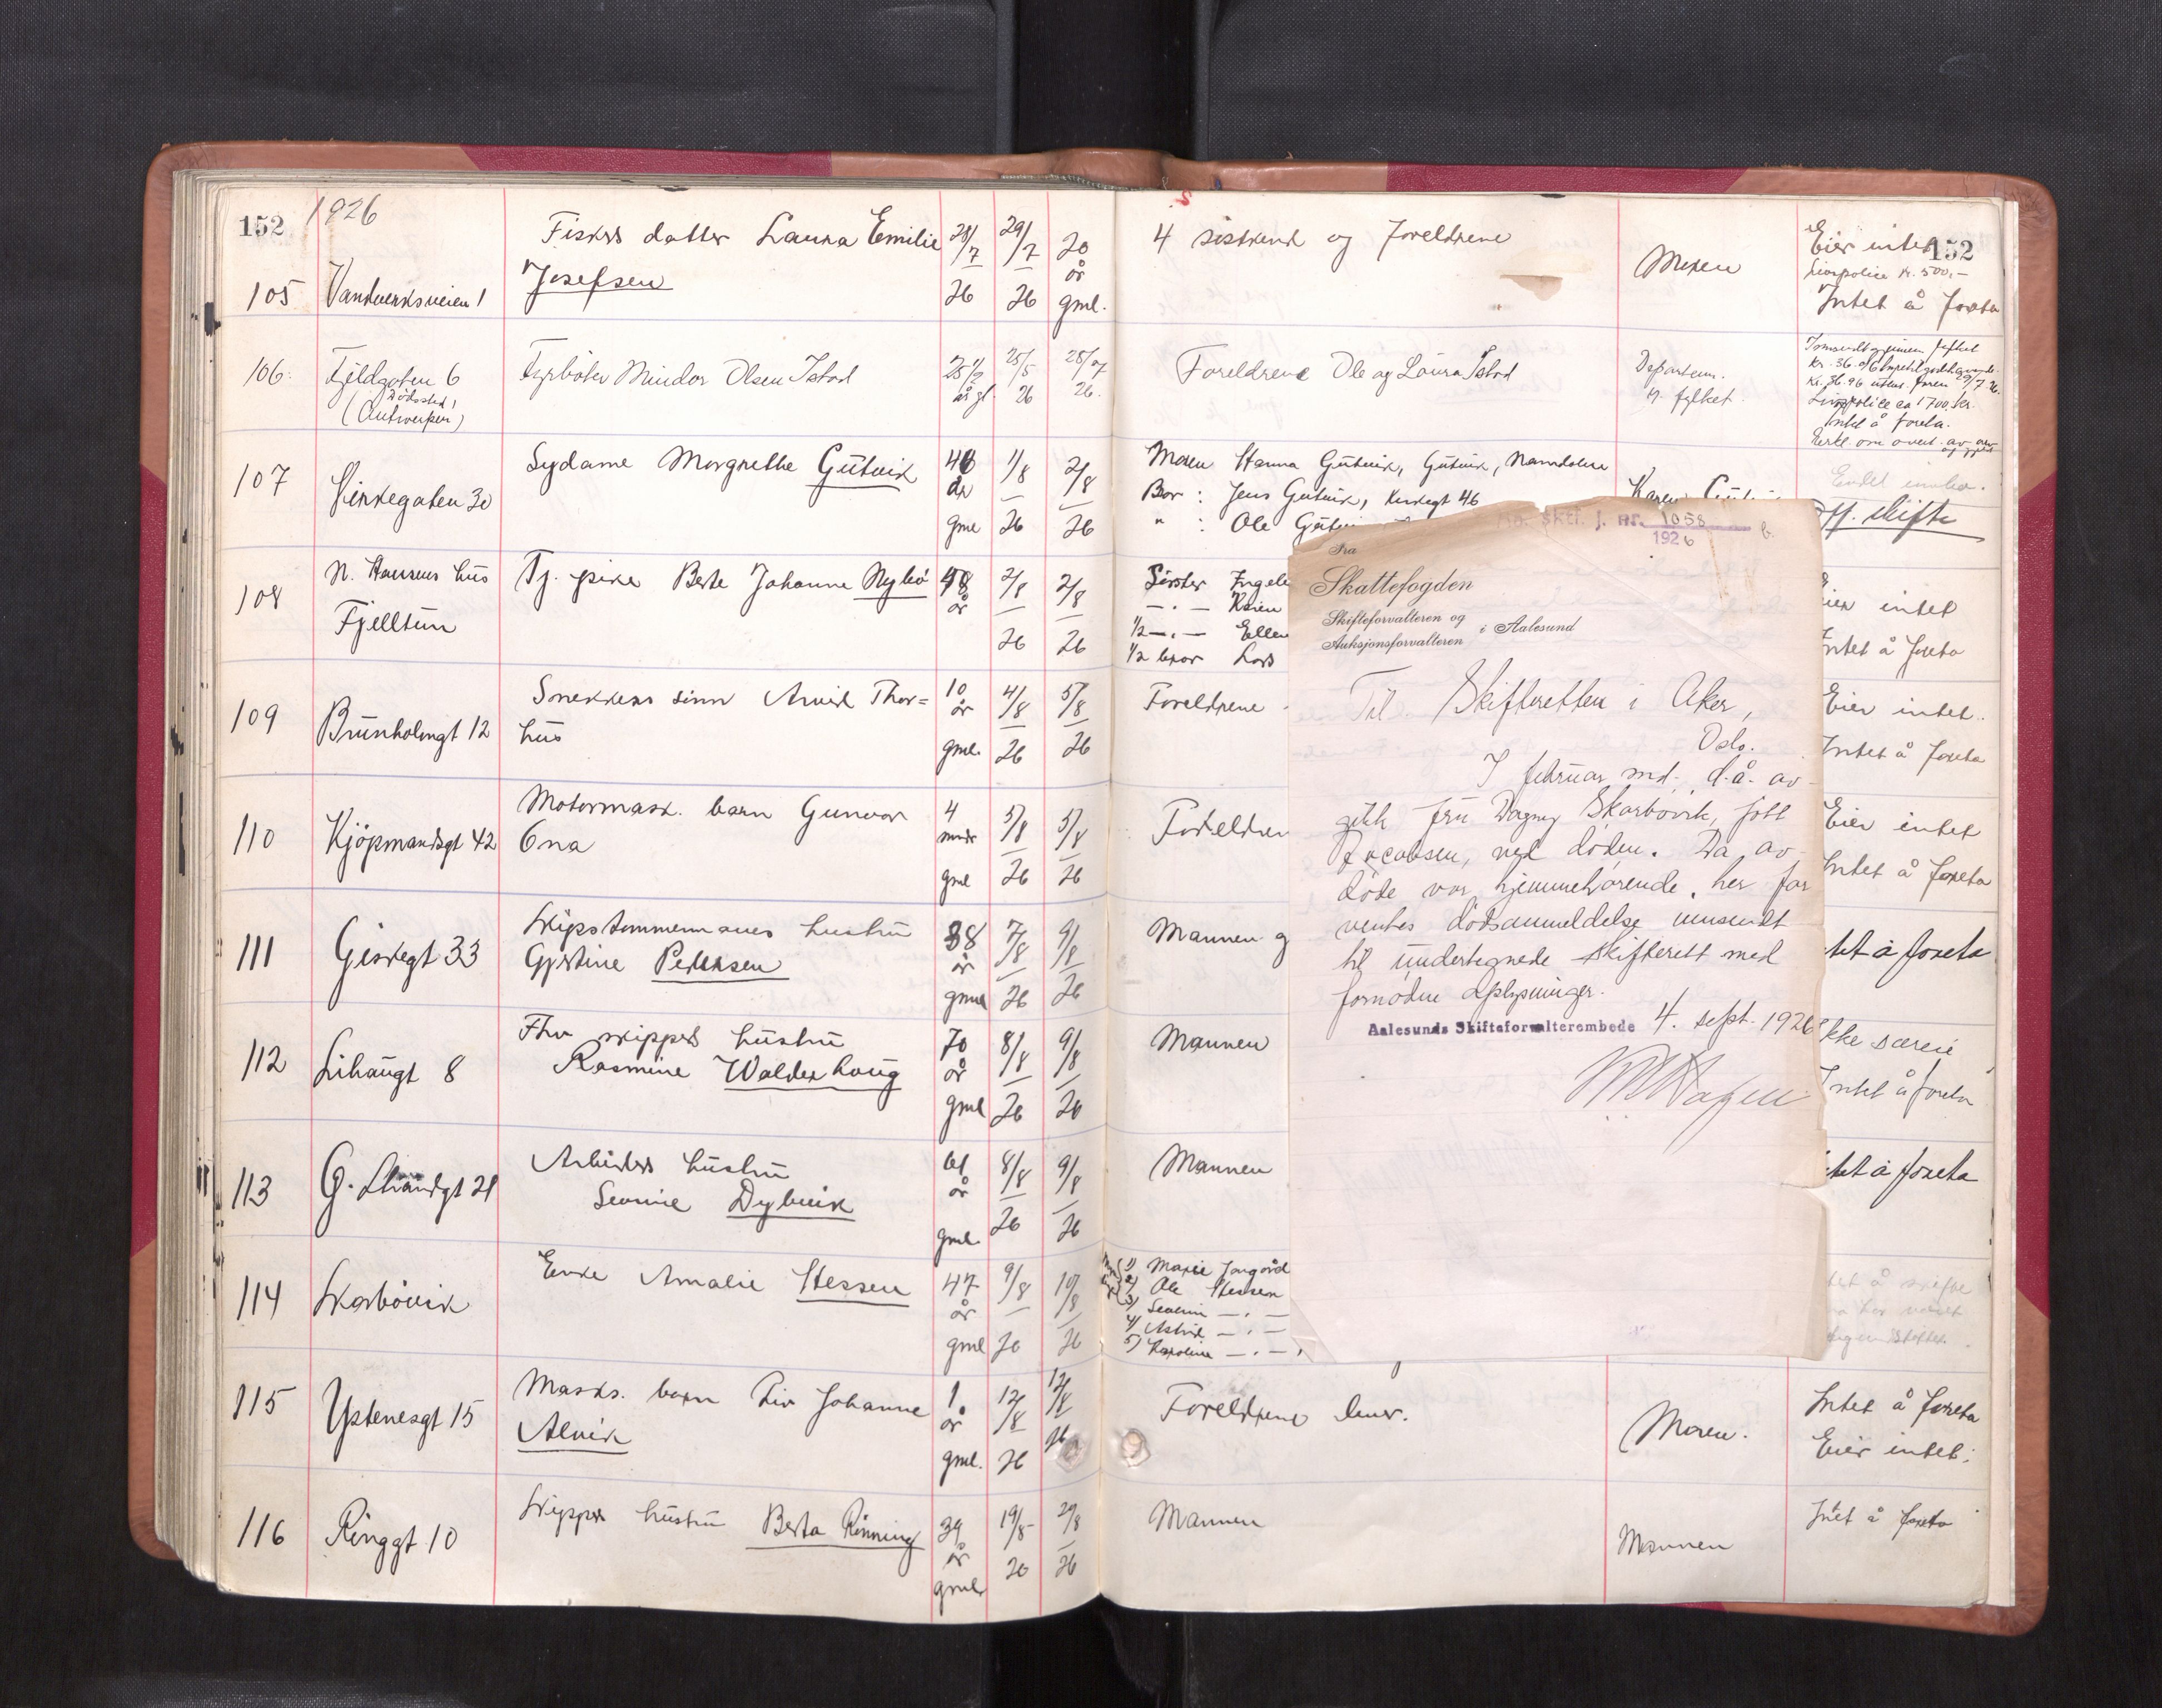 152 1926
105 Vandverksveien 1
Fiskers datter Laura Emilie
Josefsen
28/7 26
29/7 26
20 år gml.
4 søskend og foreldrene
Moren
152
Eier intet
Livspolice kr. 500,-
Intet å foreta
106. Fjeldgaten 6
(Antwerpen)
Fyrbøter Mindor Olsen Istad
25 1/2 år gl.
25/5 26
28/07 26.
Foreldrene Ole og Laura Istad
Departem.
fylket
Livspolice ca 1700 kr.
Intet å foreta.
107 Kirkegaten 30
Sydame Margrethe Gütvik
år gml
1/8 26
2/8 26
Moren Hanna Gütvik, Gütvik, Namdalen
Bror: Jens Gütvik, Kirkegt 46
" : Ole
Karen
Off. skifte
108 N. Hansens hus
Fjelltun
Tj. pike Berte Johanne Nybö
48 år
2/8 26
2/8 26
Søster
-"- Karen
1/2 -"- Ellen
1/2 bror Lars
Eier intet
Intet å foreta
109 Brunholmgt 12
Snekkers sønn Arvid Thor=
hus
10 år gml.
4/8 26
5/8 26
Foreldrene
Eier intet.
Intet å foreta
110 Kjöpmandsgt 42
Motormask. barn Gunvor
Ona
4 mndr gml
5/8 26
5/8 26
Foreldrene
Eier intet
Intet å foreta
111 Giskegt 33
Skipstømmermanns hustru
Gjertine Pedersen
38 år gml
7/8 26
9/8 26
Mannen og
Intet å foreta
112 Lihaugt 8
Fhv skippers hustru
Rasmine Walderhaug
70 år gml
8/8 26
9/8 26
Mannen
Ikke særeie
Intet å foreta
113 G. Strandgt 21
Arbeiders hustru
Sevrine Dybvik
61 år gml.
8/8 26
9/8 26
Mannen
Intet å foreta
114 Skarbövik
Enke Amalie Hessen
47 år gml
9/8 26
10/8 26
1) Marie
2) Ole Hessen
3) Severin -"-
4) Astrid -"-
5) Karoline -"-
115 Ystenesgt 15
Masks. barn Liv Johanne
Alvik
1 år gml.
12/8 26
12/8 26
Foreldrene lever.
Moren.
Intet å foreta
Eier intet.
116 Ringgt 10
Skippers hustru Berta Rønning
39 år gml
19/8 26
29/8 26
Mannen
Mannen
Intet å foreta
skti. j. nr. 1058 b.
1926
Fra
Skattefogden
Skifteforvalteren og
Auksjonsforvalteren i Aalesund
Til Skifteretten i Aker,
Oslo.
I februar md. d.å. av-
gikk fru Dagny Skarbövik, født
Jacobsen, ved døden. Da av-
døde var hjemmehørende her for
ventes dødsanmeldelse innsendt
til undertegnede skifterett med
fornødne oplysninger.
Aalesunds Skifteforvalterembede 4. sept. 1926